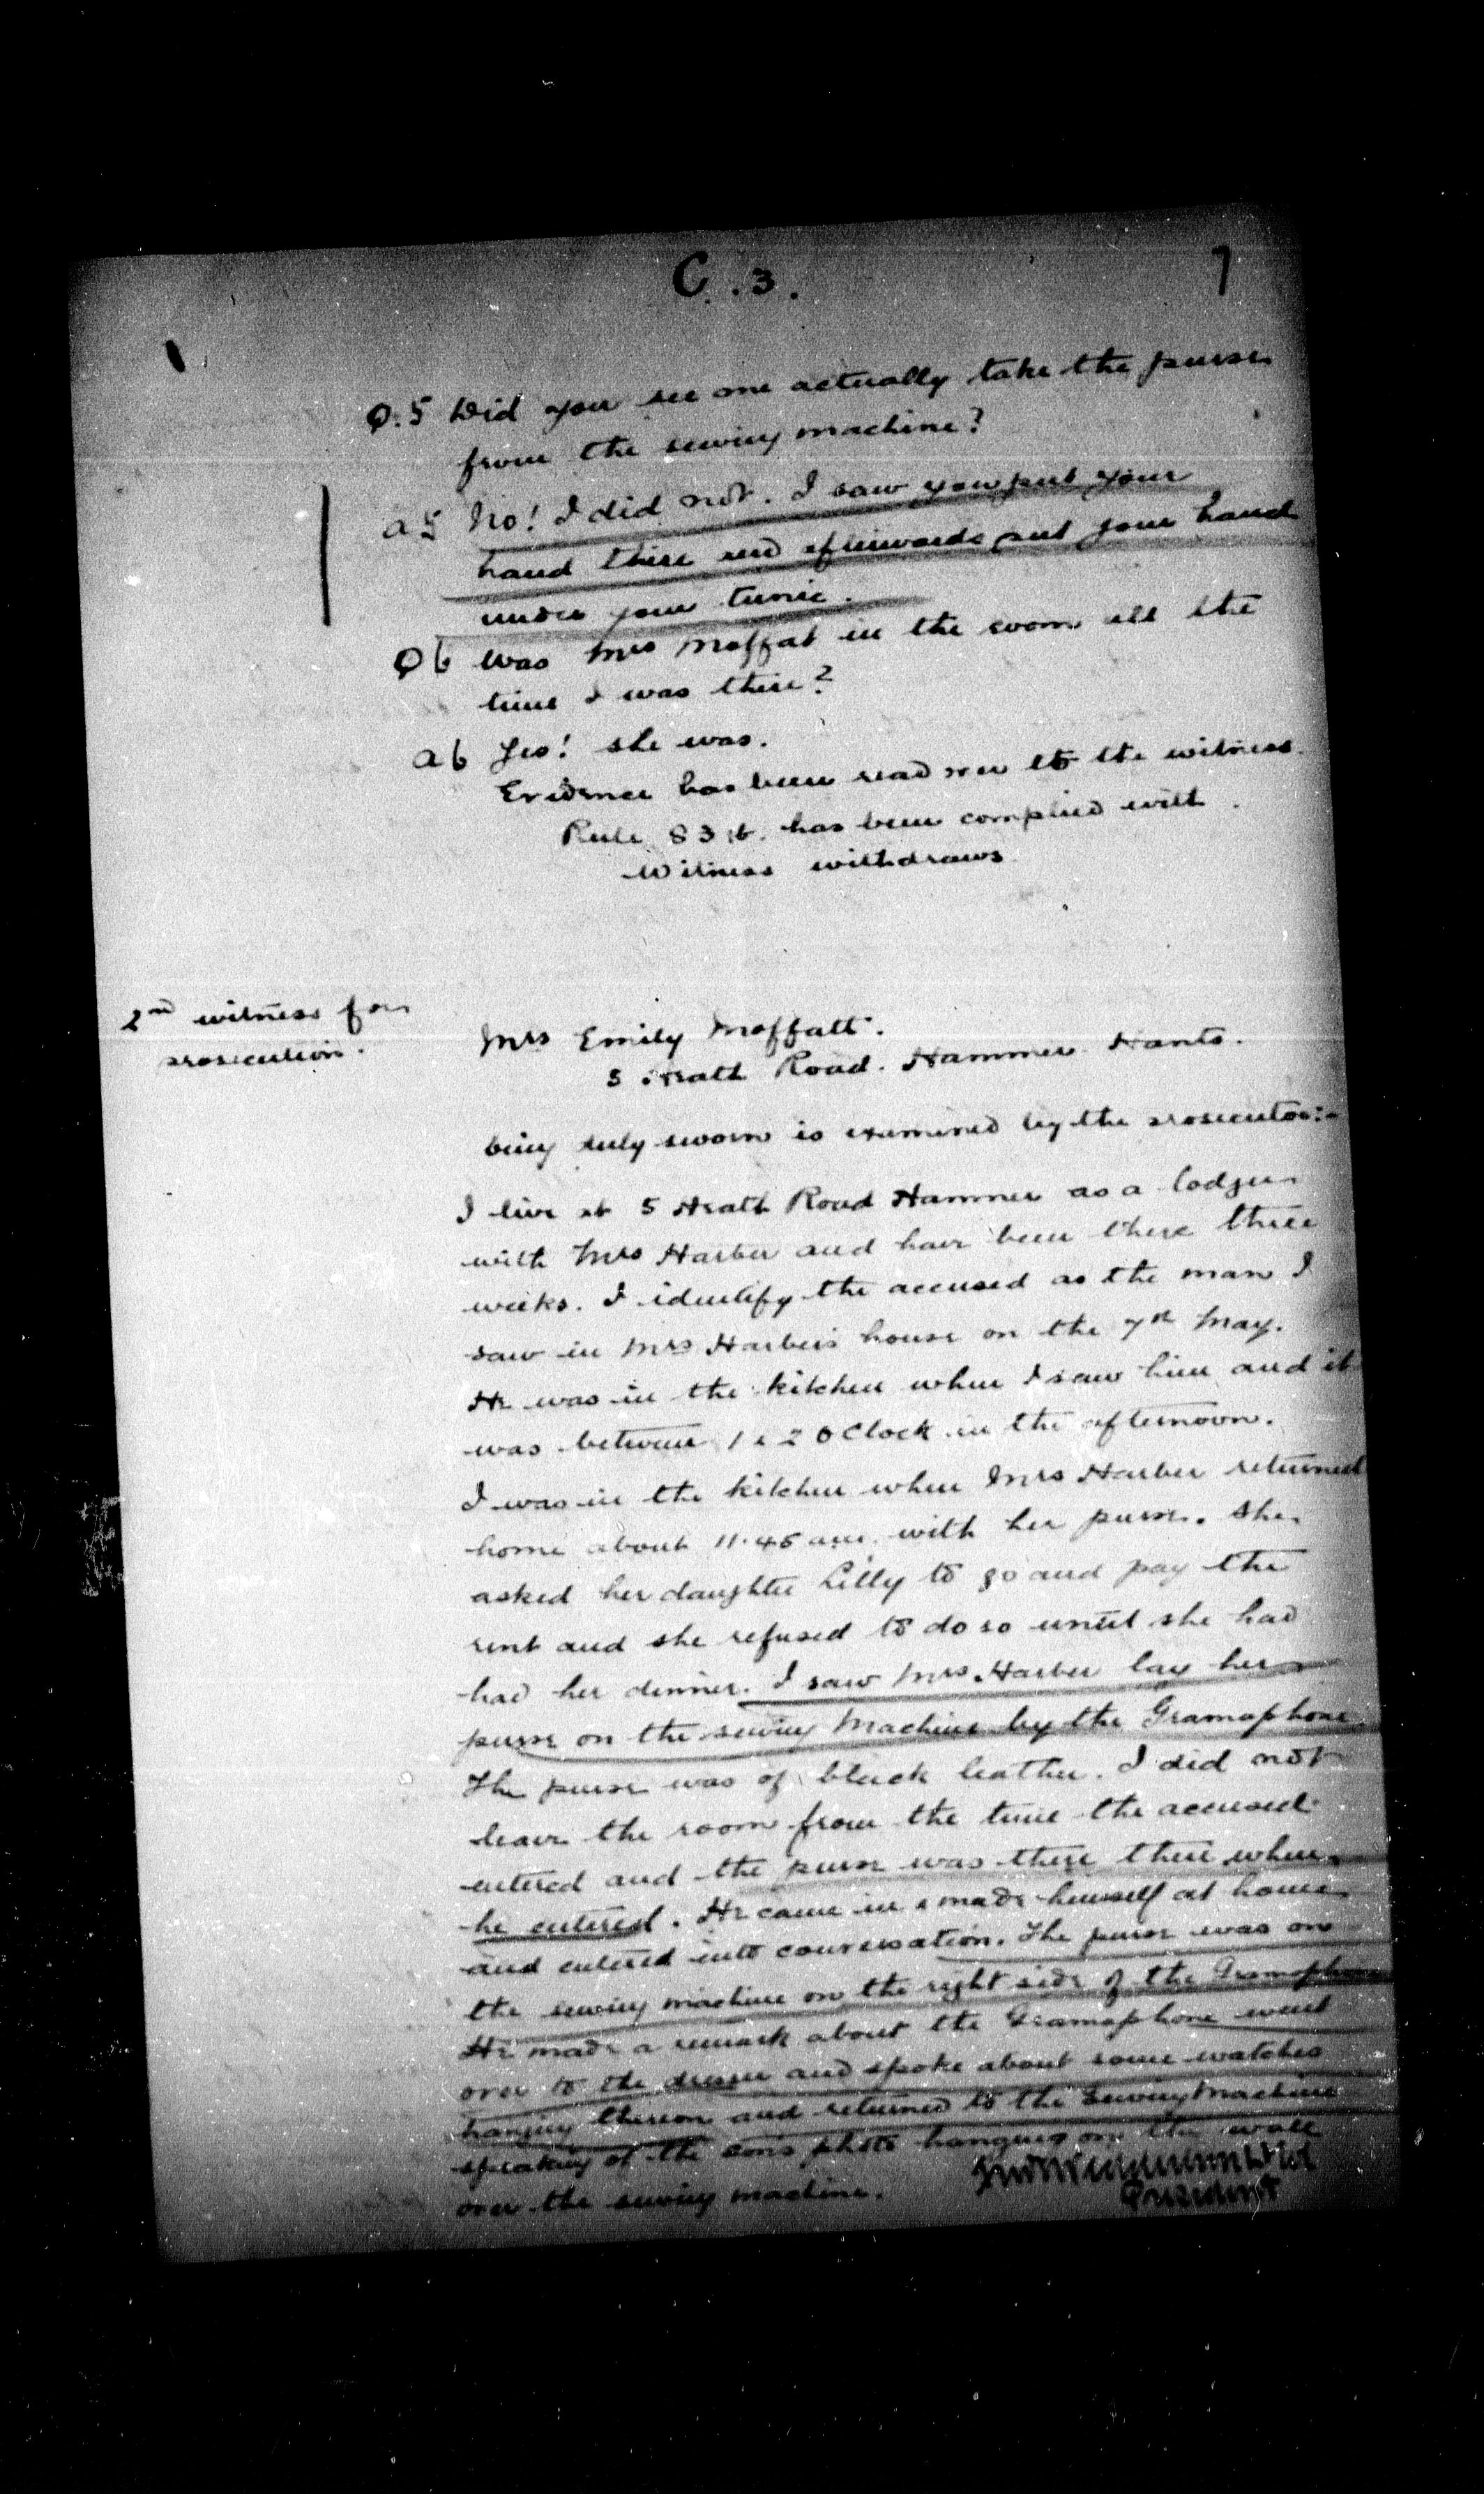 C.3.
7
Q.5 Did you see me actually take the purse
from the sewing machine?
a5 No! I did not. I saw you put your
hand there and afterwards put your hand
under your tunic.
Q6 Was Mrs Moffat in the room all the
time I was there?
a6 Yes! she was.
Evidence has been read over to the witness.
Rule 83 b. has been complied with.
Witness withdraws
2nd witness for
prosecution.
Mrs Emily Moffatt.
5 Heath Road. Hammer Hants.
being duly sworn is examined by the prosecutor:-
I live at 5 Heath Road Hammer as a lodger
with Mrs Harber and have been there three
weeks. I identify the accused as the man I
saw in Mrs Harber's house on the 7th May.
He was in the kitchen when I saw him and it
was between 1 & 2 oClock in the afternoon.
I was in the kitchen when Mrs Harber returned
home about 11.45 am. with her purse. She
asked her daughter Lilly to go and pay the
rent and she refused to do so until she had
had her dinner. I saw Mrs. Harber lay her
purse on the sewing Machine by the Gramophone.
The purse was of black leather. I did not
leave the room from the time the accused
entered and the purse was there there when
he entered. He came in & made himself at home
and entered into conversation. The purse was on
the sewing machine on the right side of the Gramophone
He made a remark about the Gramophone went
over to the dresser and spoke about some watches
hanging thereon and returned to the Sewing Machine
speaking of the son's photo hanging on the wall
over the sewing machine.
President